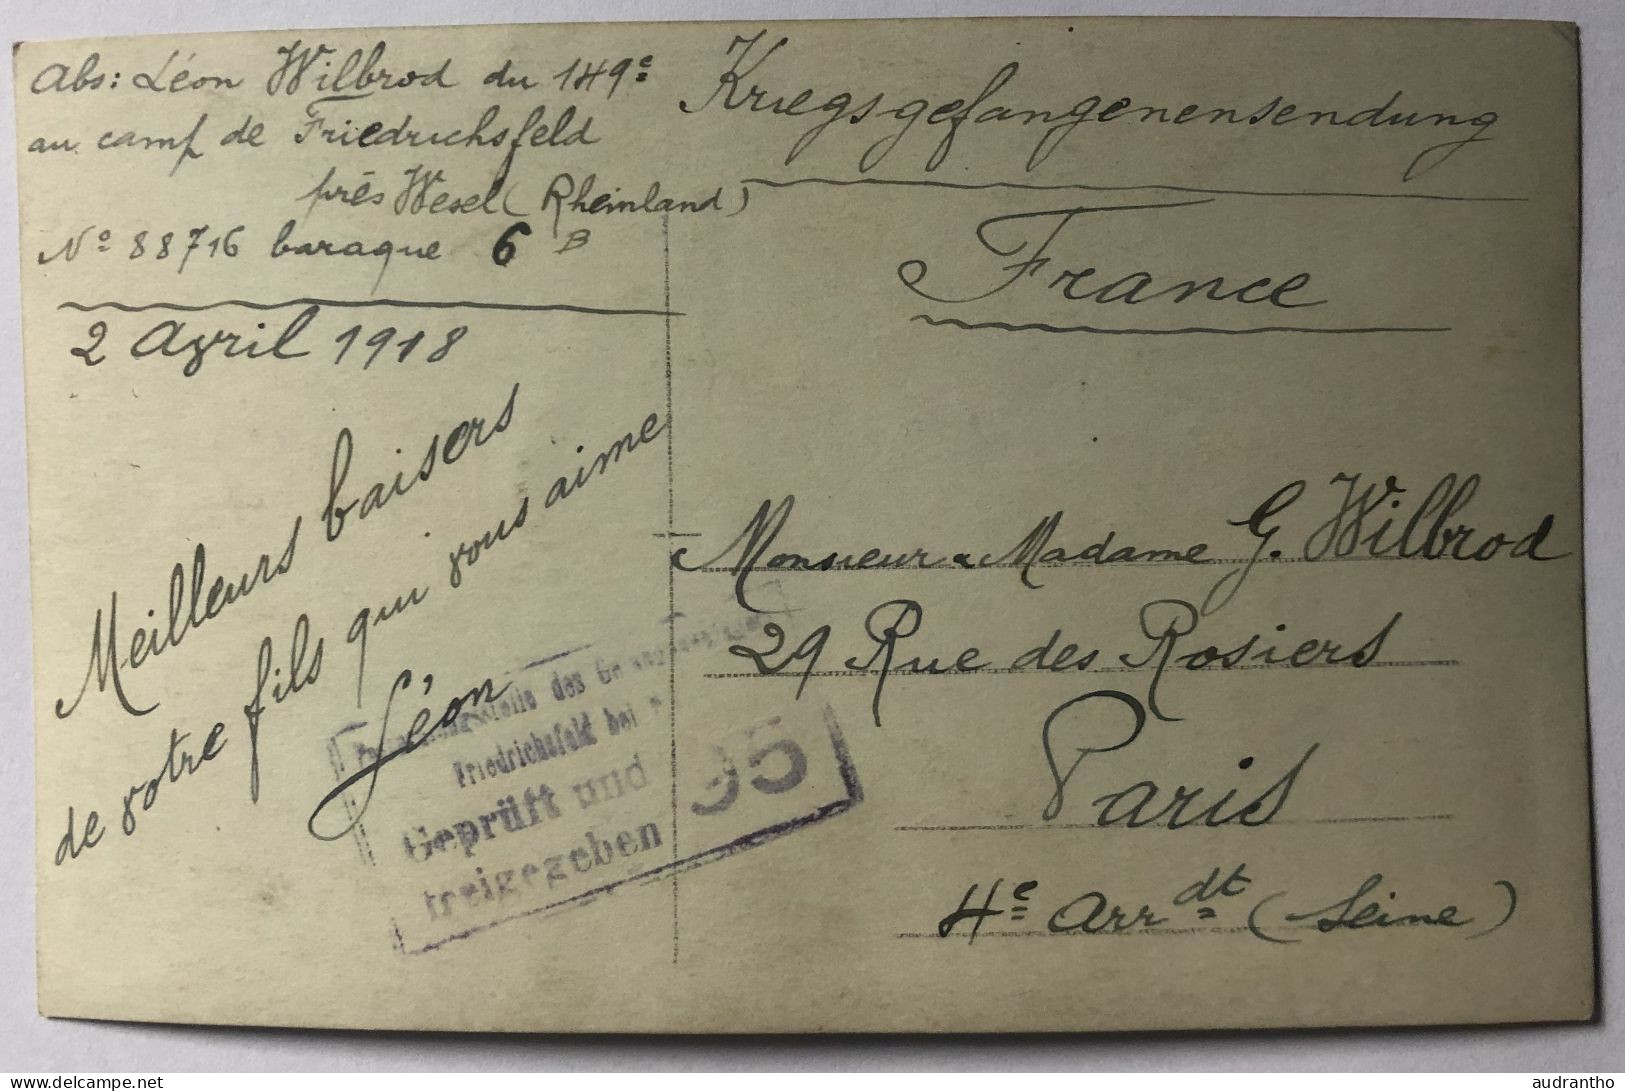 Abs: Léon Wilbrod du 149e
au camp de Friedrichsfeld
près Wesel (Rheinland)
No 88716 baraque 6 B
2 Avril 1918
Meilleurs baisers
de votre fils qui vous aime
Léon
Kriegsgefangenensendung
France
Monsieur & Madame G. Wilbrod
29 Rue des Rosiers
Paris
4e Arrdt (Seine)
des
Friedrichsfeld bei
Geprüft und
freigegeben
95
delcampe.net
audrantho